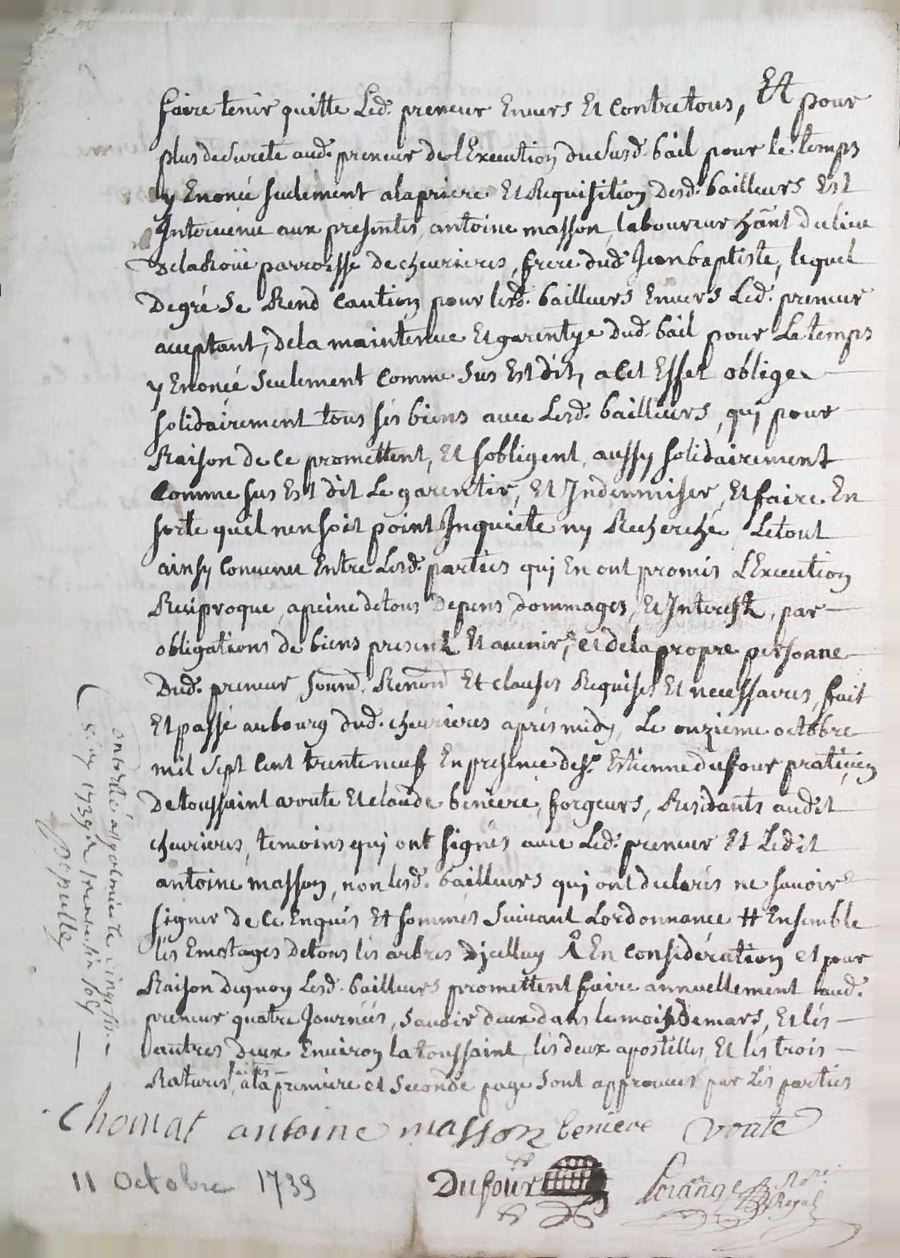 faire tenir quitte Led. preneur Envers Et contre tous, Et pour
plus de Sureté aud. preneur de lExecution du Susd. bail pour le temps
y Enoncé seulement a la priere Et Requisition Desd. bailleurs Est
Intervenu aux presentes, antoine masson, laboureur hant du lieu
De la Roüe parroisse de chevrieres, frere dud. Jean baptiste, lequel
De gré Se Rend Caution pour lesd. bailleurs Envers Led. preneur
acceptant, de la maintenue Et garentye dud. bail pour Le temps
y Enoncé Seulement comme Sus Est dit, a Cet Effet oblige
solidairement tous ses biens avec Lesd. bailleurs, qui pour
Raison de ce promettent, Et sobligent aussy solidairement
comme sus Est dit Le garentir, Et Indemniser, Et faire En
sorte quil nen soit point Inquiete ny Recherché, Le tout
ainsy convenu Entre Lesd. parties qui En ont promis LExecution
Reciproque, a peine de tous Depens dommages, Et Interest, par
obligations de biens present Et avenir, et de la propre personne
Dud. preneur soum. Renon. Et clauses Requises Et necessaires, fait
Et passé au bourg dud. chevrieres aprés midy, Le onzieme octobre
mil sept Cent trente neuf En presence de s. Estienne dufour praticien
de toussaint voute Et claude beniere, forgeurs, Residants audit
chevrieres, temoins qui ont signés avec Led. preneur Et Ledit
antoine masson, non lesd. bailleurs qui ont declarés ne savoir
signer de ce Enquis Et sommés Suivant Lordonnance # Ensemble
les Emotages de tous les arbres Djcelluy En considération et pour
Raison dequoy Lesd. bailleurs promettent faire annuellement aud.
preneur quatre Journées, scavoir deux dans le mois De mars, Et les
autres deux Environ la toussaint, les deux apostilles, Et les trois
Ratures, a la premiere et Seconde page sont approuvés par Les parties
Chomat antoine masson beniere voute
Dufour
Notre Royal
11 Octobre 1739